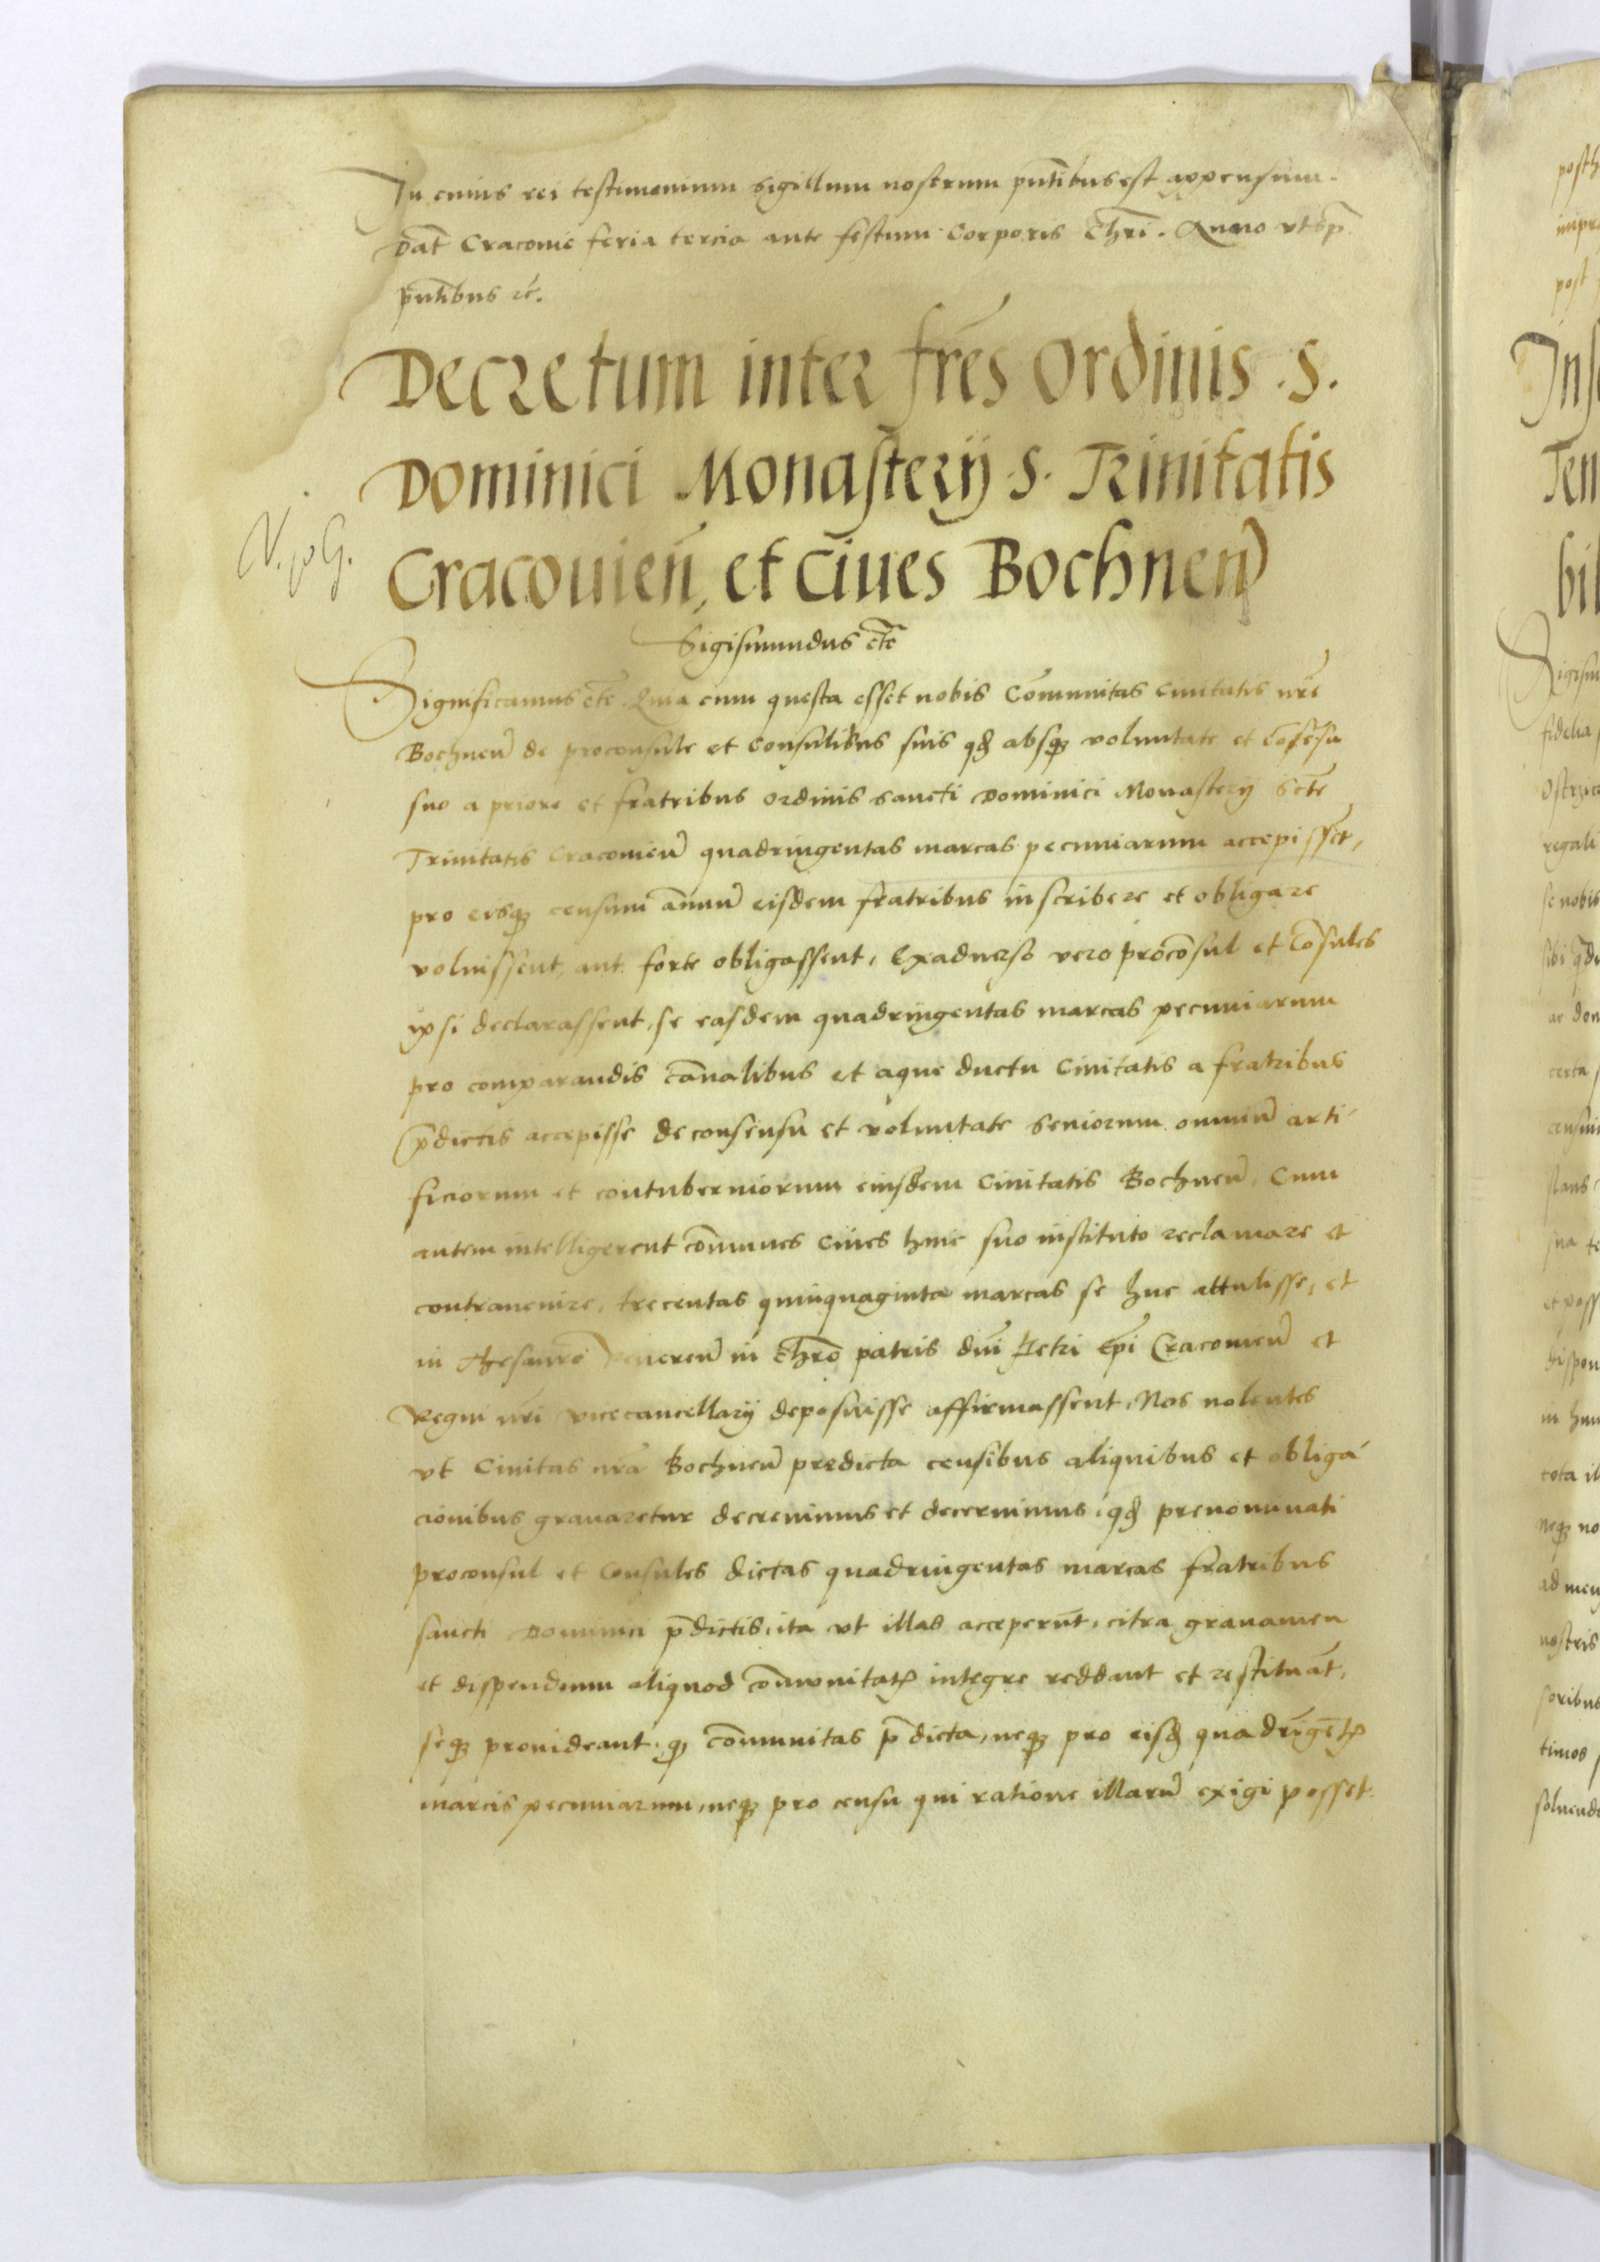 In cuius rei testimonium Sigillum nostrum pñtibus est appensum.
Dat̃ Cracovie feria tercia ante festum Corporis Chri̅. Anno vt sp̃
pñtibus zc̃.
Decretum inter fr̃es Ordinis .S.
Dominici Monasterij .S. Trinitatis
Cracouien̄, et ciues Bochnen̄
N.
Sigismundus etc̃
Significamus etc̃ Quia cum questa esset nobis Com̅unitas Ciuitatis nr̃e
Bochnen̄ de proconsule et Consulibus suis qđ absqȝ voluntate et Co̅se̅su
suo a priore et fratribus ordinis sancti Dominici Monasterij Sctẽ
Trinitatis Cracouien̄ quadringentas marcas pecuniarum accepisset,
pro eisqȝ censum an̅uu̅ eisdem fratribus inscribere et obligare
voluissent, aut forte obligassent, Exaduerso vero proco̅sul et Co̅sules
ipsi declarassent, se easdem quadringentas marcas pecuniarum
pro comparandis can̅alibus et aque ductu Ciuitatis a fratribus
p̅dictis accepisse de consensu et voluntate Seniorum omniu̅ arti-
ficiorum et contuberniorum eiusdem Ciuitatis Bochnen̄, Cum
autem intelligerent com̅unes Ciues huic suo instituto reclamare et
contrauenire, trecentas quinquaginta marcas se huc attulisse, et
in thesauro Reueren̄ in Chro̅ patris dni̅ Petri Ep̅i Cracouien̄ et
Regni nr̃i vicecancellarij deposuisse affirmassent, Nos nolentes
vt Ciuitas nr̃a Bochnen̄ predicta censibus aliquibus et obliga-
cionibus grauaretur decreuimus et decernimus, qđ prenominati
proconsul et Consules dictas quadringentas marcas fratribus
sancti Dominici p̅dictis, ita vt illas acceperu̅t, citra grauamen
et dispendium aliquod com̅unitatꝭ integre reddant et restitua̅t,
seqȝ prouideant, qđ com̅unitas p̅dicta, neqȝ pro eisđ quadri̅ge̅tꝭ
marcis pecuniarum, neqȝ pro censu qui ratione illaru̅ exigi posset